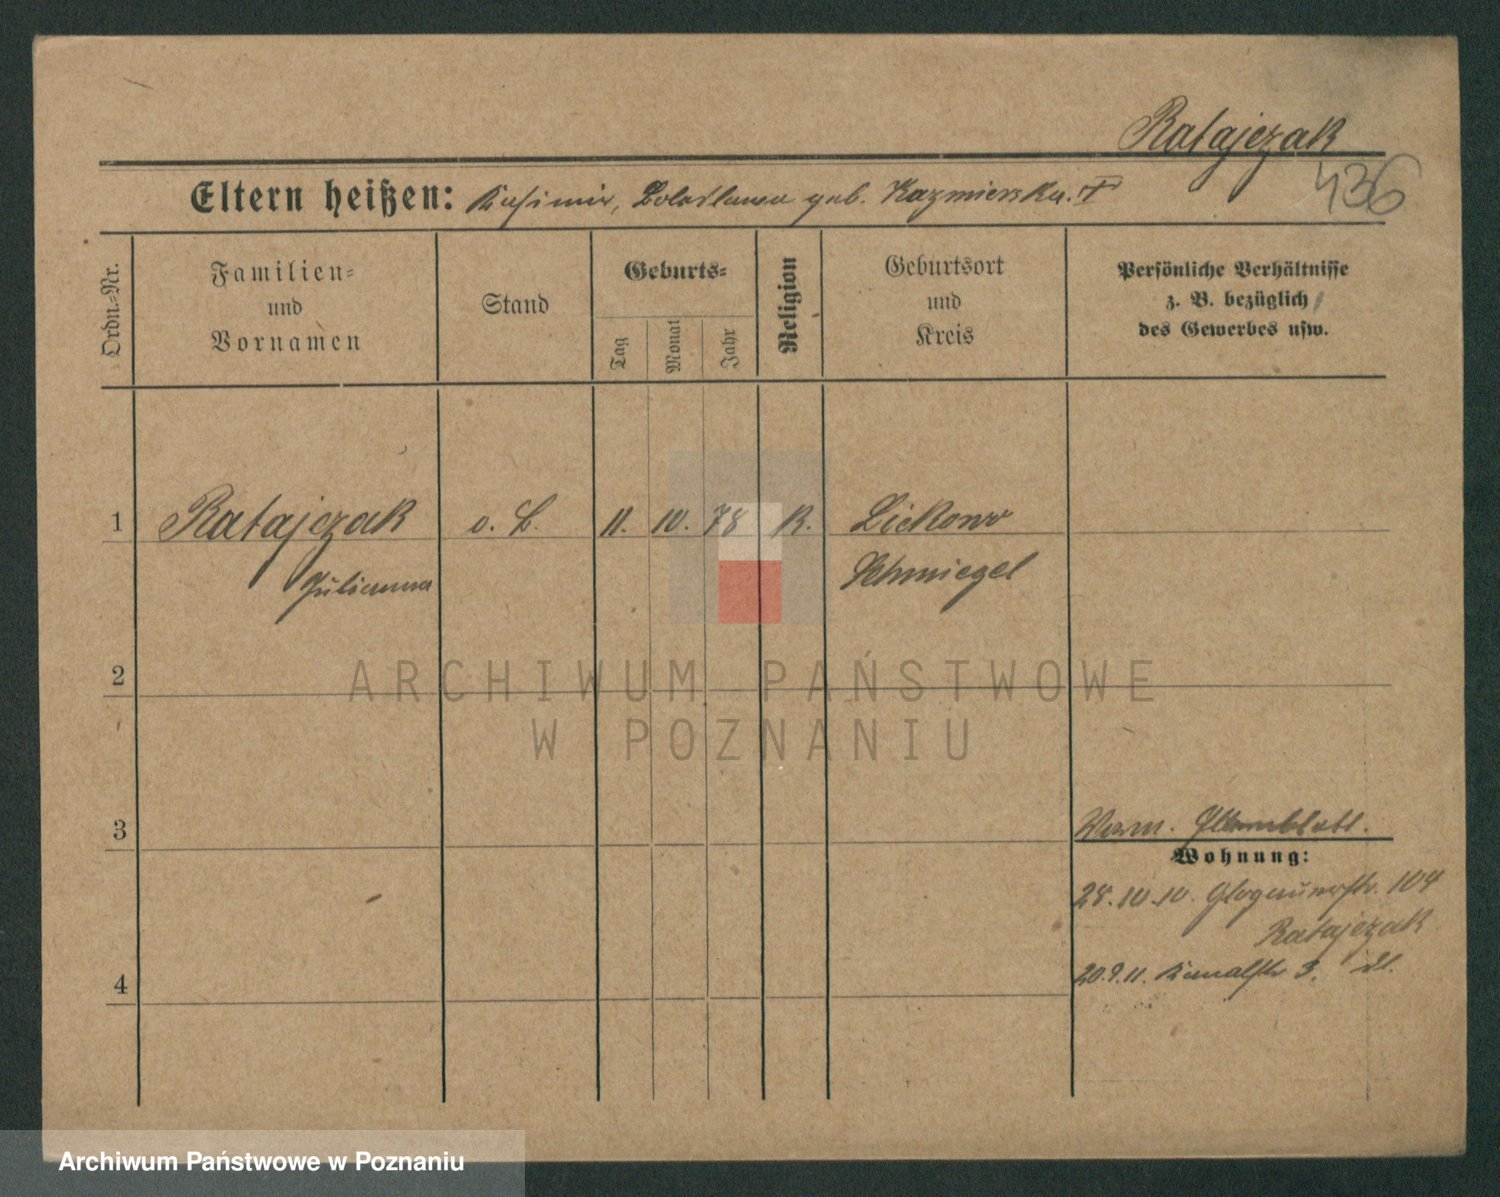 Ratajczak
436
Eltern heißen: Kasimir, Boleslawa geb. Kazmierska. †
Ordn.-Nr.
Familien-
und
Vornamen
Stand
Geburts-
Tag
Monat
Jahr
Religion
Geburtsort
und
Kreis
Persönliche Verhältnisse
z. B. bezüglich
des Gewerbes usw.
1 Ratajczak o. B. 11. 10. 78 K. Lickowo
Julianna Schmiegel
2
ARCHIWUM PAŃSTWOWE
W POZNANIU
3
Stammblatt.
Wohnung:
28.10.10. Glogauerstr. 104
Ratajczak
4
20.9.11. Kanalstr 3.
Archiwum Państwowe w Poznaniu